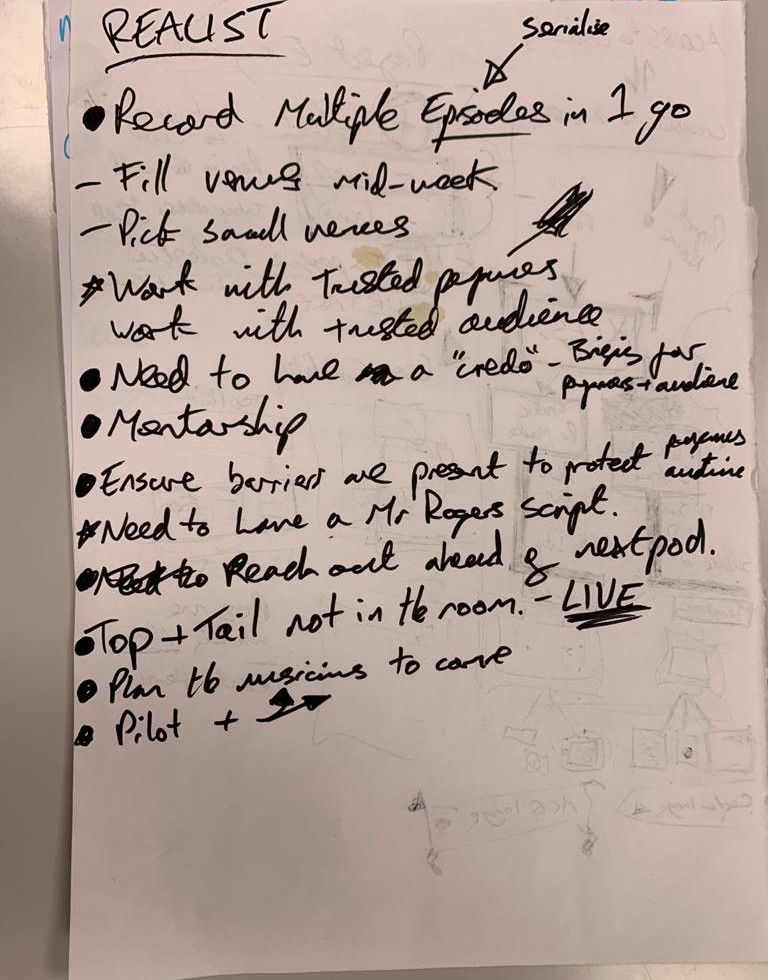 REALIST
Serialise
• Record Multiple Episodes in 1 go
- Fill venues mid-week.
- Pick small venues
* Work with Trusted
work with trusted audience
• Need to have a "credo" - for
+ audience
• Mentorship
• Ensure barriers are present to protect
* Need to have a Mr Rogers script.
• Reach out ahead of next pod.
• Top + Tail not in the room. - LIVE
• Plan the musicians to come
• Pilot +